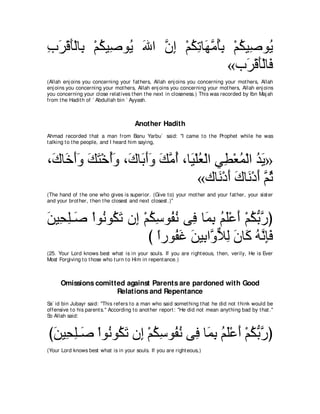 بِالْأَقْرَبِ يُوصِيكُمْ اللهَ إِنَّ بِأُمَّهَاتِكُمْ يُوصِيكُمْ
فَالْأَقْرَب»
(Allah enjoins you concerning your fathers, Allah enjoins you concerning your mothers, Allah
enjoins you concerning your mothers, Allah enjoins you concerning your mothers, Allah enjoins
you concerning your close relatives then the next in closeness.) This was recorded by Ibn Majah
from the Hadith of `Abdullah bin `Ayyash.
Another Hadith
Ahmad recorded that a man from Banu Yarbu` said: "I came to the Prophet while he was
talking to the people, and I heard him saying,
«يَدُ الْمُعْطِي الْعُلْيَا، أُمَّكَ وَأَبَاكَ، وَأُخْتَكَ وَأَخَاكَ،
ثُمَّ أَدْنَاكَ أَدْنَاك»
(The hand of the one who gives is superior. (Give to) your mother and your father, your sister
and your brother, then the closest and next closest.)"
(رَّبُّكُمْ أَعْلَمُ بِمَا فِى نُفُوسِكُمْ إِن تَكُونُواْ صَـلِحِينَ
فَإِنَّهُ كَانَ لِلأَوَّابِينَ غَفُوراً )
(25. Your Lord knows best what is in your souls. If you are righteous, then, verily, He is Ever
Most Forgiving to those who turn to Him in repentance.)
Omissions comitted against Parents are pardoned with Good
Relations and Repentance
Sa`id bin Jubayr said: "This refers to a man who said something that he did not think would be
offensive to his parents." According to another report: "He did not mean anything bad by that."
So Allah said:
(رَّبُّكُمْ أَعْلَمُ بِمَا فِى نُفُوسِكُمْ إِن تَكُونُواْ صَـلِحِينَ)
(Your Lord knows best what is in your souls. If you are righteous,)